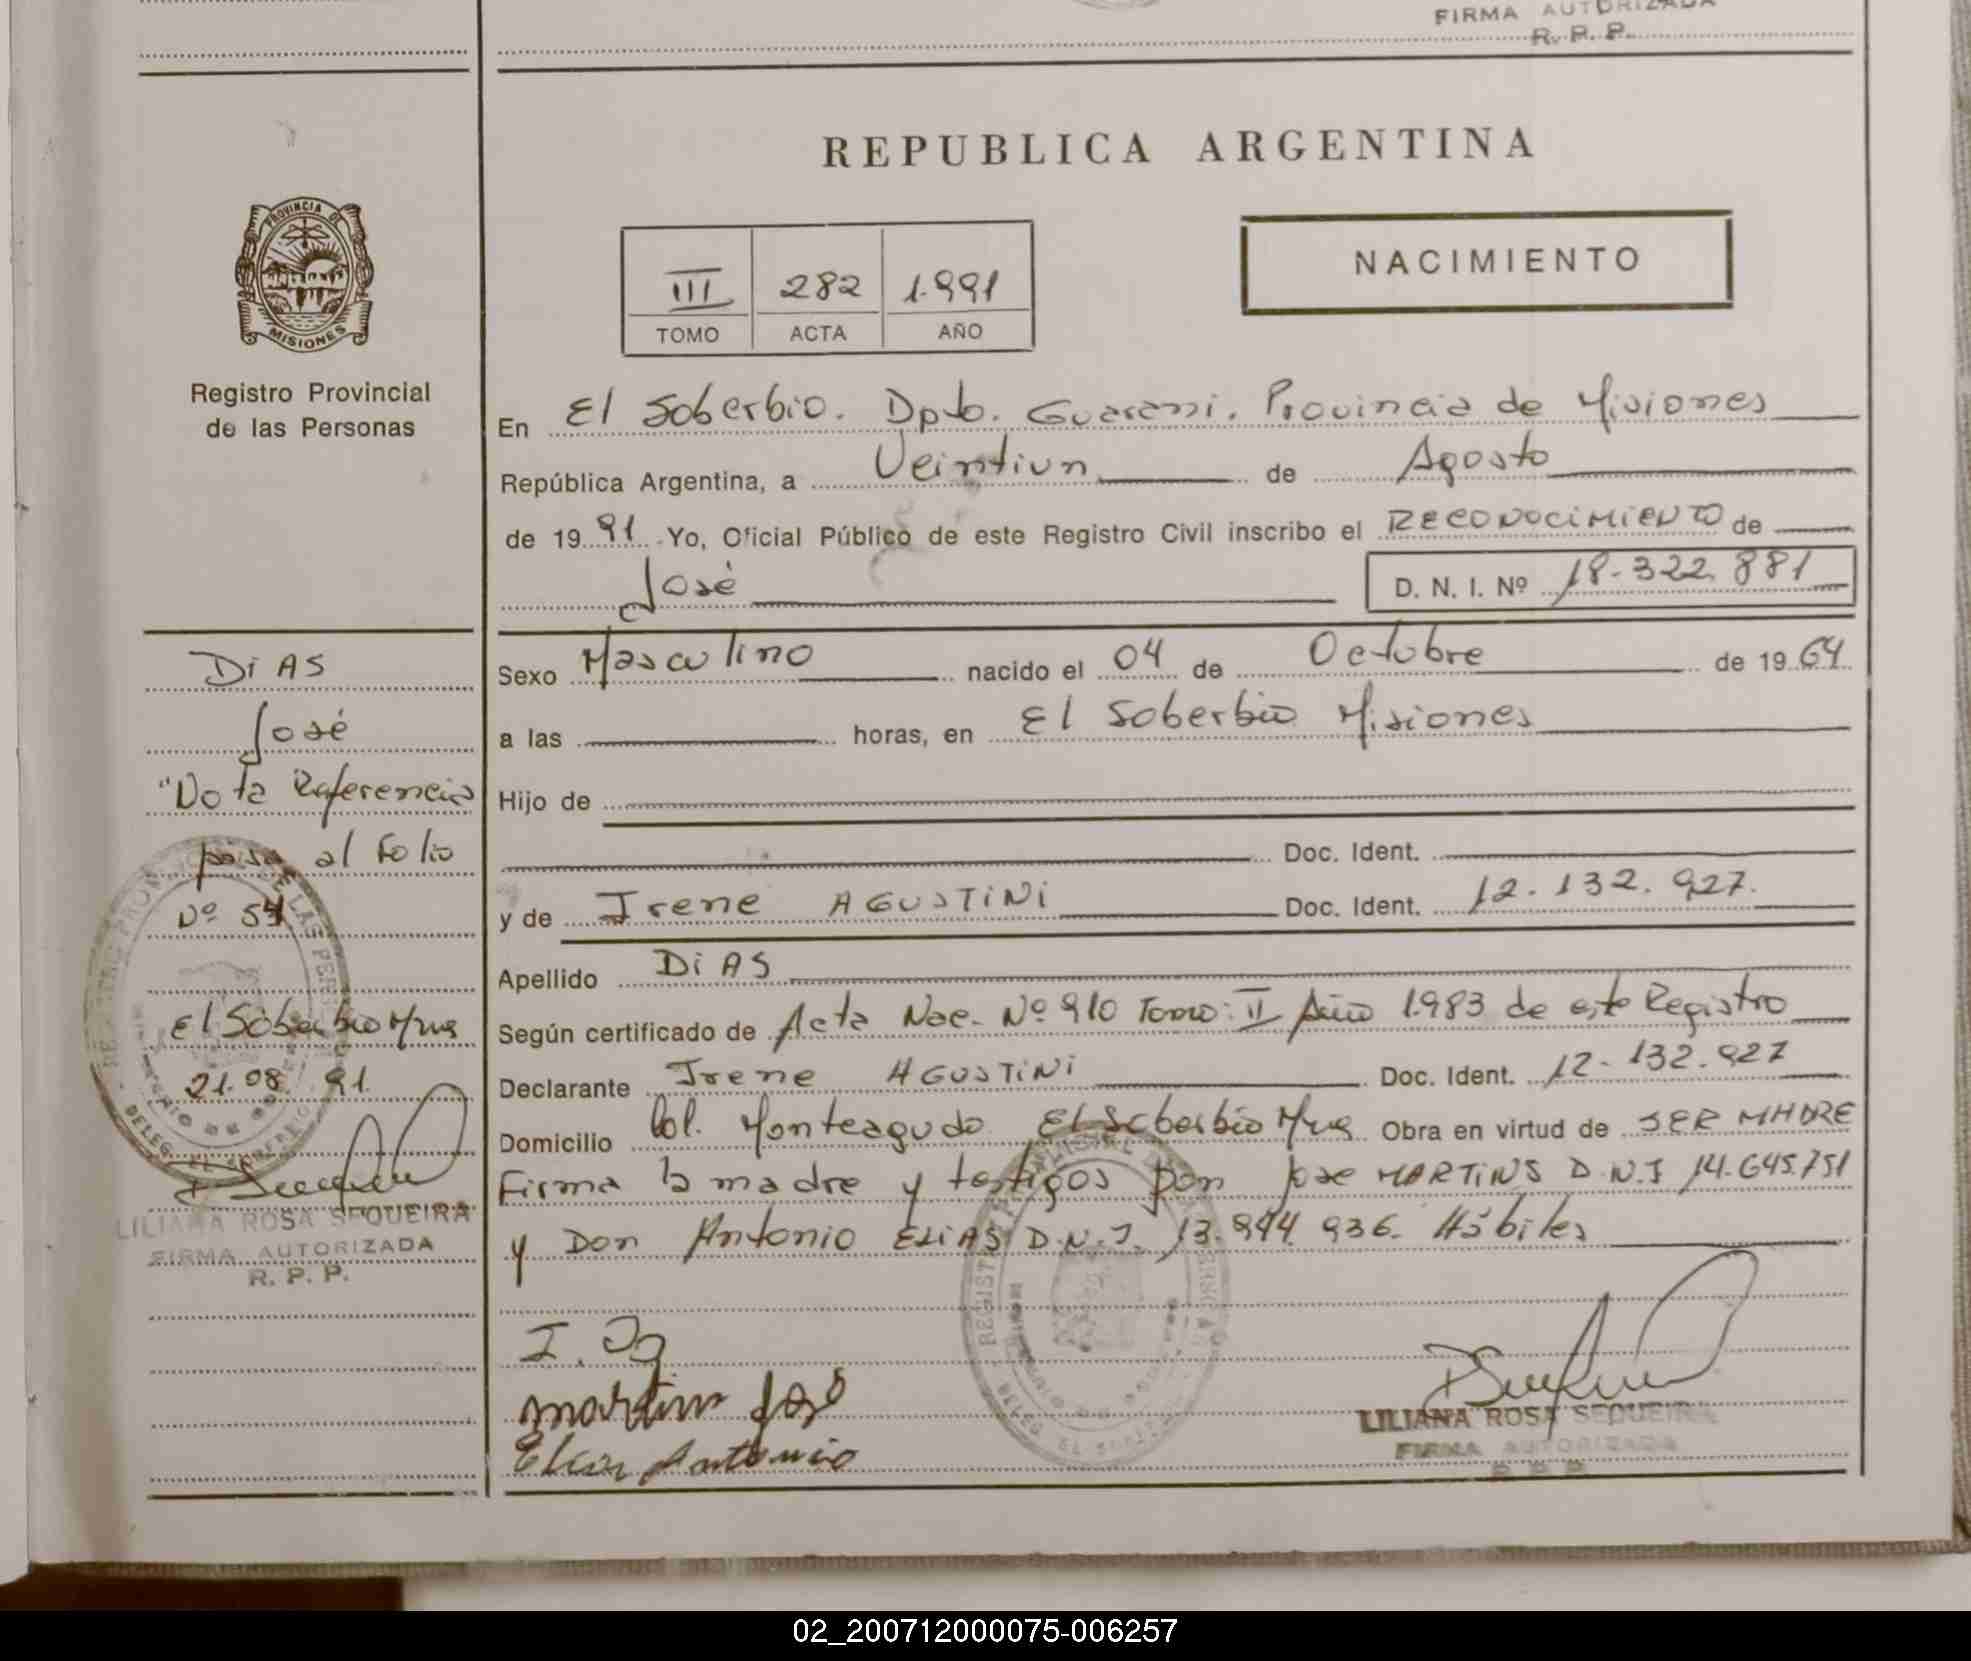 FIRMA AUTORIZADA
R. P. P.
REPUBLICA ARGENTINA
PROVINCIA DE
MISIONES
Registro Provincial
de las Personas
III 282 1.991
TOMO ACTA AÑO
NACIMIENTO
En El Soberbio. Dpto. Guarani. Provincia de Misiones
República Argentina, a Veintiun de Agosto
de 19 91 Yo, Oficial Público de este Registro Civil inscribo el RECONOCIMIENTO de
José D. N. I. Nº 18.322.881
Sexo Masculino nacido el 04 de Octubre de 19 64
a las horas, en El Soberbio Misiones
Hijo de
Doc. Ident.
y de Irene AGUSTINI Doc. Ident. 12.132.927.
Apellido DiAS
Según certificado de Acta Nac. Nº 910 Tomo: II Año 1.983 de este Registro
Declarante Irene AGUSTINI Doc. Ident. 12.132.927
Domicilio Col. Monteagudo El Soberbio Mnes Obra en virtud de SER MADRE
Firma la madre y testigos Don Jose MARTINS D.N.I 14.645.751
y Don Antonio ELIAS D.N.I. 13.944.936. Hábiles
DiAS
José
"Nota Referencia
pasa al Folio
Nº 54
El Soberbio Mnes
21.08.91.
LILIANA ROSA SEQUEIRA
FIRMA AUTORIZADA
R. P. P.
I. Ag
martins José
Elias Antonio
LILIANA ROSA SEQUEIRA
FIRMA AUTORIZADA
R. P. P.
02_200712000075-006257